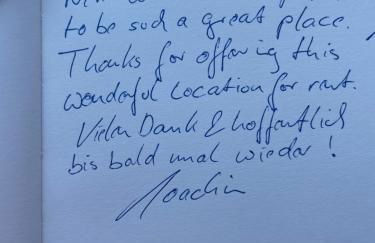 to be such a great place.
Thanks for offering this
wonderful location for rent.
Vielen Dank & hoffentlich
bis bald mal wieder!
Joachim